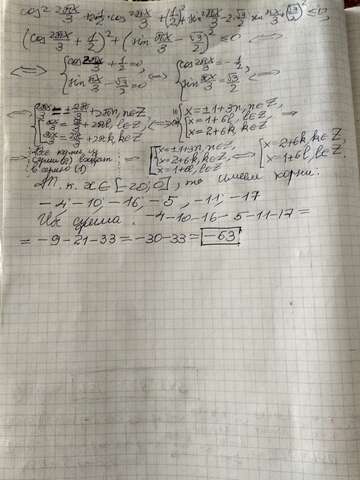 cos² 2πx/3 + 2·1/2·cos 2πx/3 + (1/2)² + sin² πx/3 - 2·√3/2·sin πx/3 + (√3/2)² ≤ 0,
(cos 2πx/3 + 1/2)² + (sin πx/3 - √3/2)² ≤ 0 ⟺
⟺ { cos 2πx/3 + 1/2 = 0, sin πx/3 - √3/2 = 0 ⟺ { cos 2πx/3 = -1/2, sin πx/3 = √3/2 ⟺
⟺ { 2πx/3 = ±2π/3 + 2πn, n∈Z, [ πx/3 = π/3 + 2πl, l∈Z, πx/3 = 2π/3 + 2πk, k∈Z ⟺ { x = ±1+3n, n∈Z, [ x = 1+6l, l∈Z, x = 2+6k, k∈Z
Все корни из
серии (2) входят
в серию (1)
⟺ { x = ±1+3n, n∈Z, [ x = 2+6k, k∈Z, x = 1+6l, l∈Z ⟺ [ x = 2+6k, k∈Z x = 1+6l, l∈Z
Т. к. x ∈ [-20; 0], то имеем корни:
-4, -10, -16, -5, -11, -17
Их сумма: -4-10-16-5-11-17 =
= -9-21-33 = -30-33 = -63